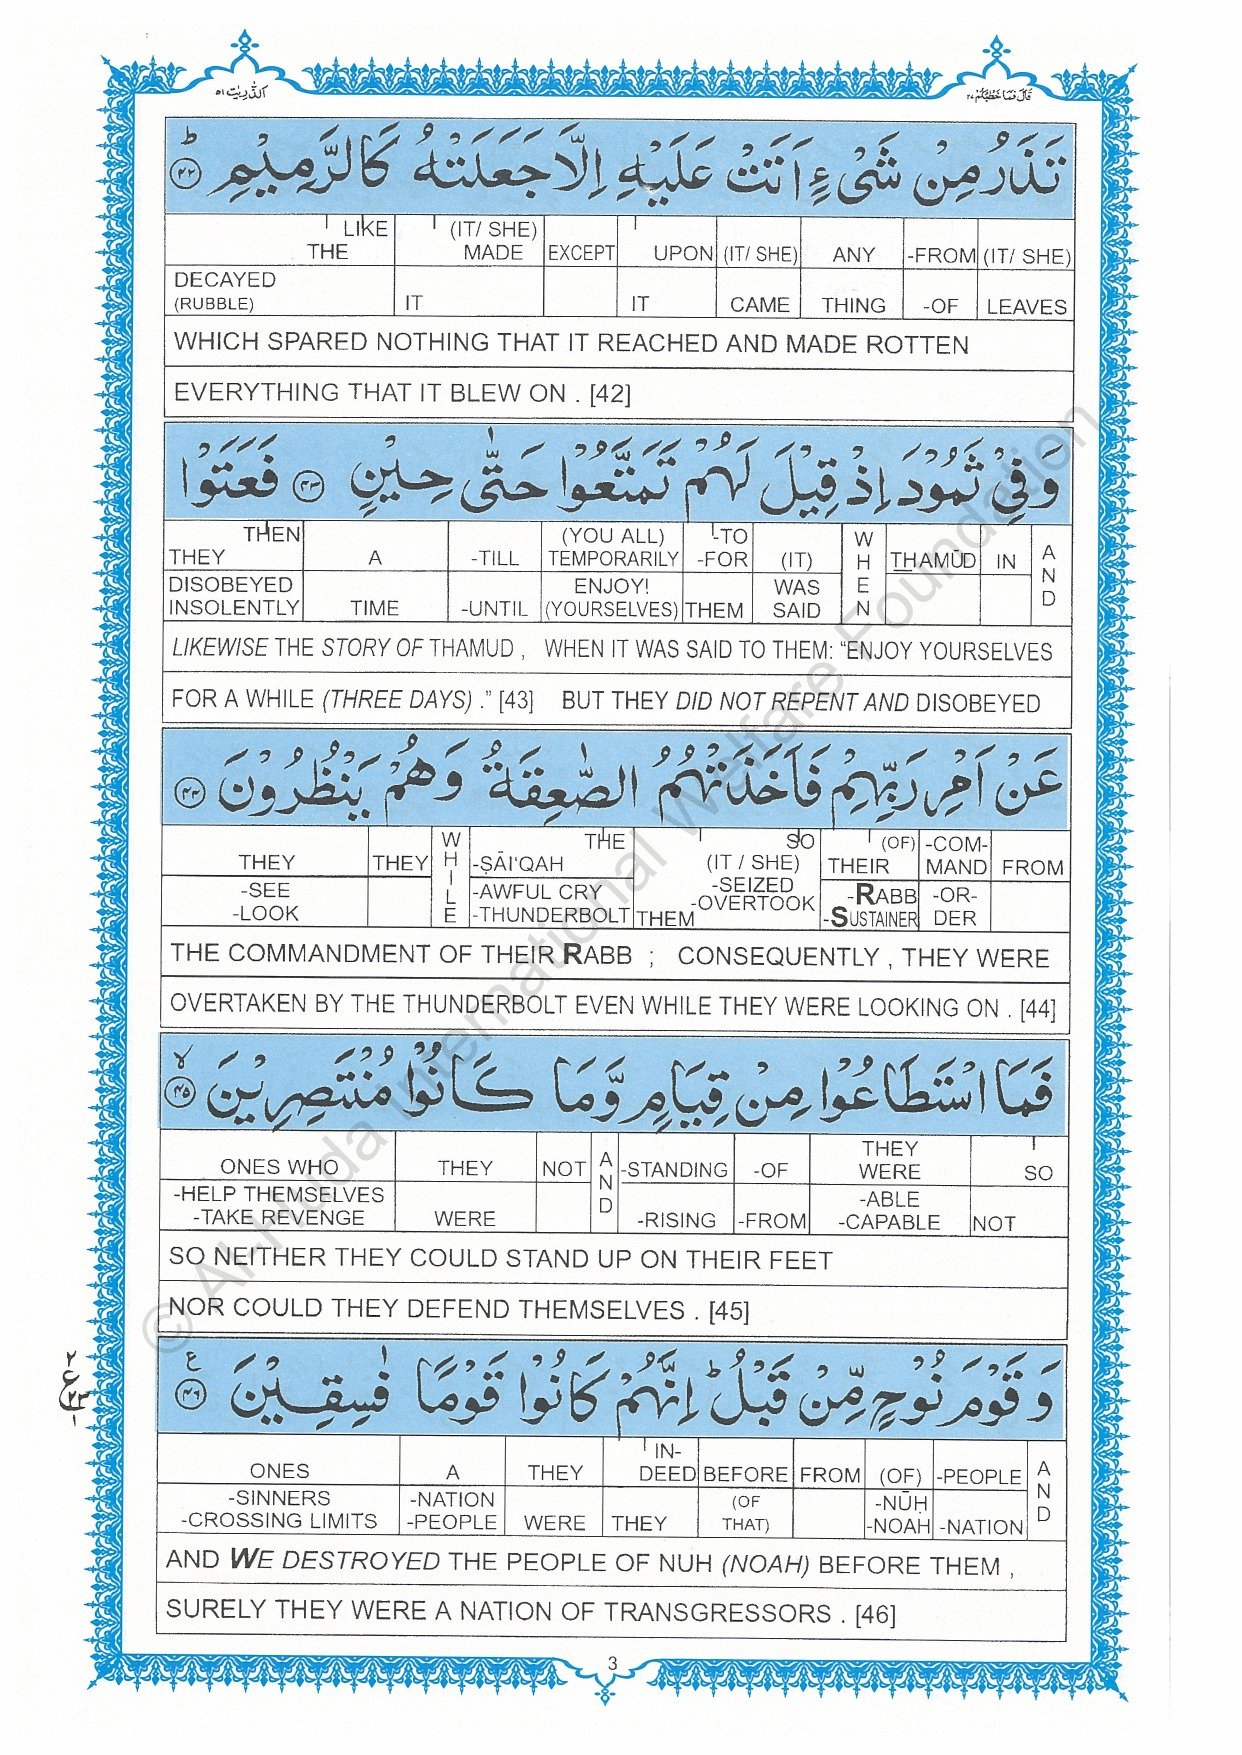 قَالَ فَمَا خَطْبُكُمْ ٢٧
اَلذّٰرِيٰت ٥١
تَذَرُ مِنْ شَىْءٍ اَتَتْ عَلَيْهِ اِلَّا جَعَلَتْهُ كَالرَّمِيْمِ ؕ ﴿۴۲﴾
LIKE (IT/ SHE)
THE MADE EXCEPT UPON (IT/ SHE) ANY -FROM (IT/ SHE)
DECAYED
(RUBBLE) IT IT CAME THING -OF LEAVES
WHICH SPARED NOTHING THAT IT REACHED AND MADE ROTTEN
EVERYTHING THAT IT BLEW ON . [42]
وَفِىْ ثَمُوْدَ اِذْ قِيْلَ لَهُمْ تَمَتَّعُوْا حَتّٰى حِيْنٍ ﴿۴۳﴾ فَعَتَوْا
THEN (YOU ALL) -TO
THEY A -TILL TEMPORARILY -FOR (IT) WHEN THAMŪD IN AND
DISOBEYED ENJOY! WAS
INSOLENTLY TIME -UNTIL (YOURSELVES) THEM SAID
LIKEWISE THE STORY OF THAMUD , WHEN IT WAS SAID TO THEM: “ENJOY YOURSELVES
FOR A WHILE (THREE DAYS) .” [43] BUT THEY DID NOT REPENT AND DISOBEYED
عَنْ اَمْرِ رَبِّهِمْ فَاَخَذَتْهُمُ الصّٰعِقَةُ وَهُمْ يَنْظُرُوْنَ ﴿۴۴﴾
THE SO (OF) -COM-
THEY THEY WHILE -ṢĀI‘QAH (IT / SHE) THEIR MAND FROM
-SEE -AWFUL CRY -SEIZED -RABB -OR-
-LOOK -THUNDERBOLT THEM -OVERTOOK -SUSTAINER DER
THE COMMANDMENT OF THEIR RABB ; CONSEQUENTLY , THEY WERE
OVERTAKEN BY THE THUNDERBOLT EVEN WHILE THEY WERE LOOKING ON . [44]
فَمَا اسْتَطَاعُوْا مِنْ قِيَامٍ وَّمَا كَانُوْا مُنْتَصِرِيْنَ ۙ ﴿۴۵﴾
THEY
ONES WHO THEY NOT AND -STANDING -OF WERE SO
-HELP THEMSELVES -ABLE
-TAKE REVENGE WERE -RISING -FROM -CAPABLE NOT
SO NEITHER THEY COULD STAND UP ON THEIR FEET
NOR COULD THEY DEFEND THEMSELVES . [45]
وَ قَوْمَ نُوْحٍ مِّنْ قَبْلُ ؕ اِنَّهُمْ كَانُوْا قَوْمًا فٰسِقِيْنَ ع ﴿۴۶﴾
٢
ع ٢٣
١
IN-
ONES A THEY DEED BEFORE FROM (OF) -PEOPLE AND
-SINNERS -NATION (OF -NŪḤ
-CROSSING LIMITS -PEOPLE WERE THEY THAT) -NOAH -NATION
AND WE DESTROYED THE PEOPLE OF NUH (NOAH) BEFORE THEM ,
SURELY THEY WERE A NATION OF TRANSGRESSORS . [46]
3
© Al-Huda International Welfare Foundation